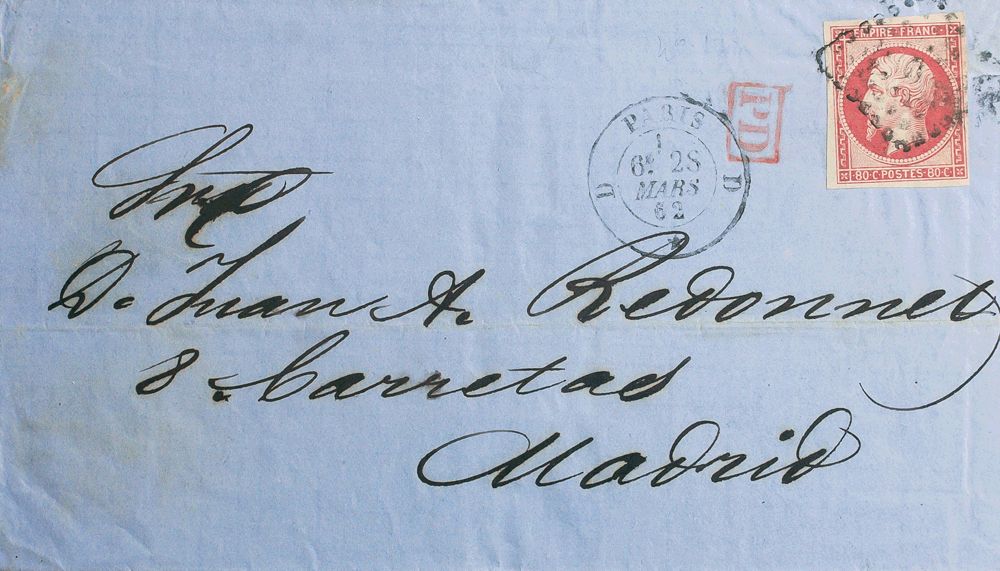 EMPIRE FRANC
80·C·POSTES·80·C·
PD
PARIS
1
6E 28
MARS
62
D D
D. Juan A. Redonnet
8. Carretas
Madrid